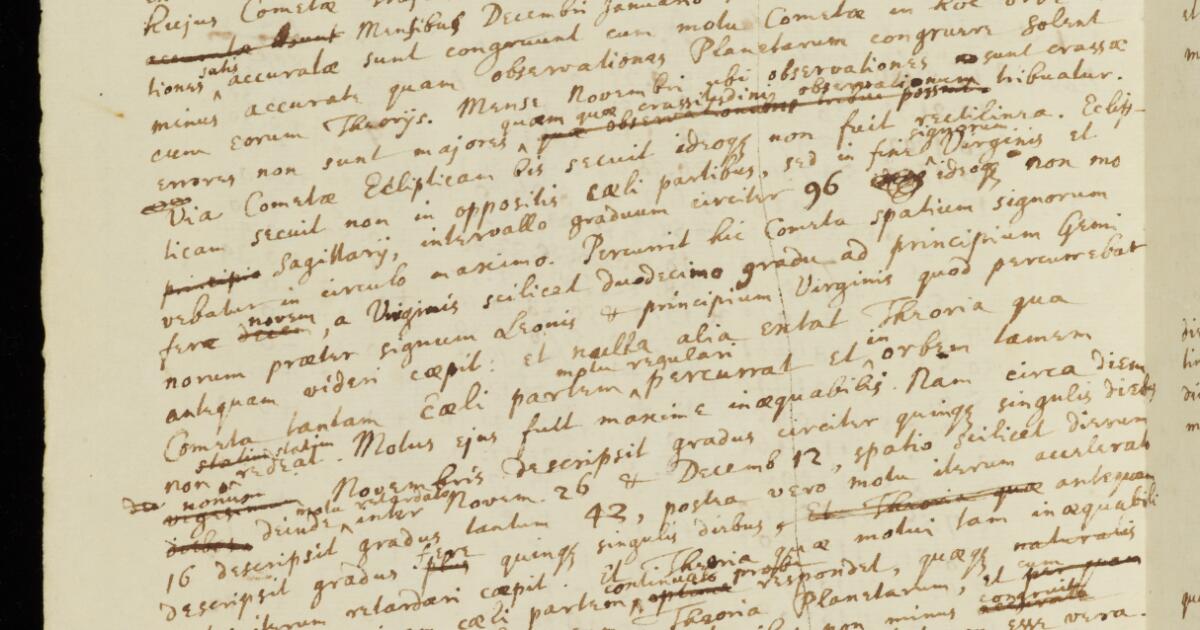 hujus Cometæ
accuratæ sunt Mensibus Decembri Januario
tiones satis accuratæ sunt congruunt cum motu Cometæ in hoc orbe
minus accurate quam observationes Planetarum congruere solent
cum eorum Theorijs. Mense Novembri ubi observationes sunt crassæ
errores non sunt majores quam quæ crassitudini observationum tribuatur.
quæ observationibus tribui possint.
Via Cometæ Eclipticam bis secuit ideoq; non fuit rectilinea. Eclip-
ticam secuit non in oppositis cæli partibus, sed in fine signorum Virginis et
principio Sagittarij, intervallo graduum circiter 96 ideoq; non mo
vebatur in circulo maximo. Percurrit hic Cometa spatium signorum
fere decem novem, a Virginis scilicet duodecimo gradu ad principium Gemi
norum præter signum Leonis & principium Virginis quod percurrebat
antequam videri cæpit. et nulla alia extat Theoria qua
Cometa tantam Cæli partem motu regulari percurrat et in orbem tamen
non statim statim redeat. Motus ejus fuit maxime inæquabilis. Nam circa diem
vigesimum nonum Novembris descripsit gradus circiter quinq; singulis diebus
diebus deinde motu retardato inter Novem. 26 & Decemb 12, spatio scilicet dierum
16 descripsit gradus tantum 42, postea vero motu iterum accelerato
descripsit gradus fere plus quinq; singulis diebus, Et Theoria quæ antequam
iterum retardari cæpit. Et Theoria quæ motui tam inæquabili
cæli partem continuato probe optime respondet, quæq; naturalis
Theoria Planetarum, et cum per quam
non minus congruit accurate
esse vera.